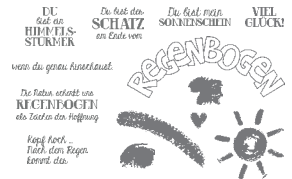 DU
bist ein
HIMMELS-
STÜRMER
Du bist der
SCHATZ
am Ende vom
Du bist mein
SONNENSCHEIN
VIEL
GLÜCK!
wenn du genau hinschaust.
REGENBOGEN
Die Natur schenkt uns
REGENBOGEN
als Zeichen der Hoffnung
Kopf hoch ...
Nach dem Regen
kommt der